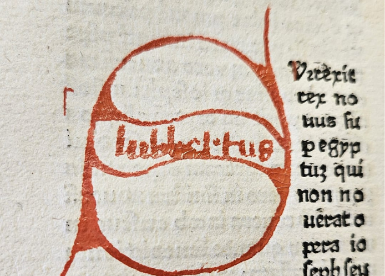 lubbertus
Vrrexit
rex no
uus su
p egyp
tũ qui
non no
uẽrat o
pera io
seph seu